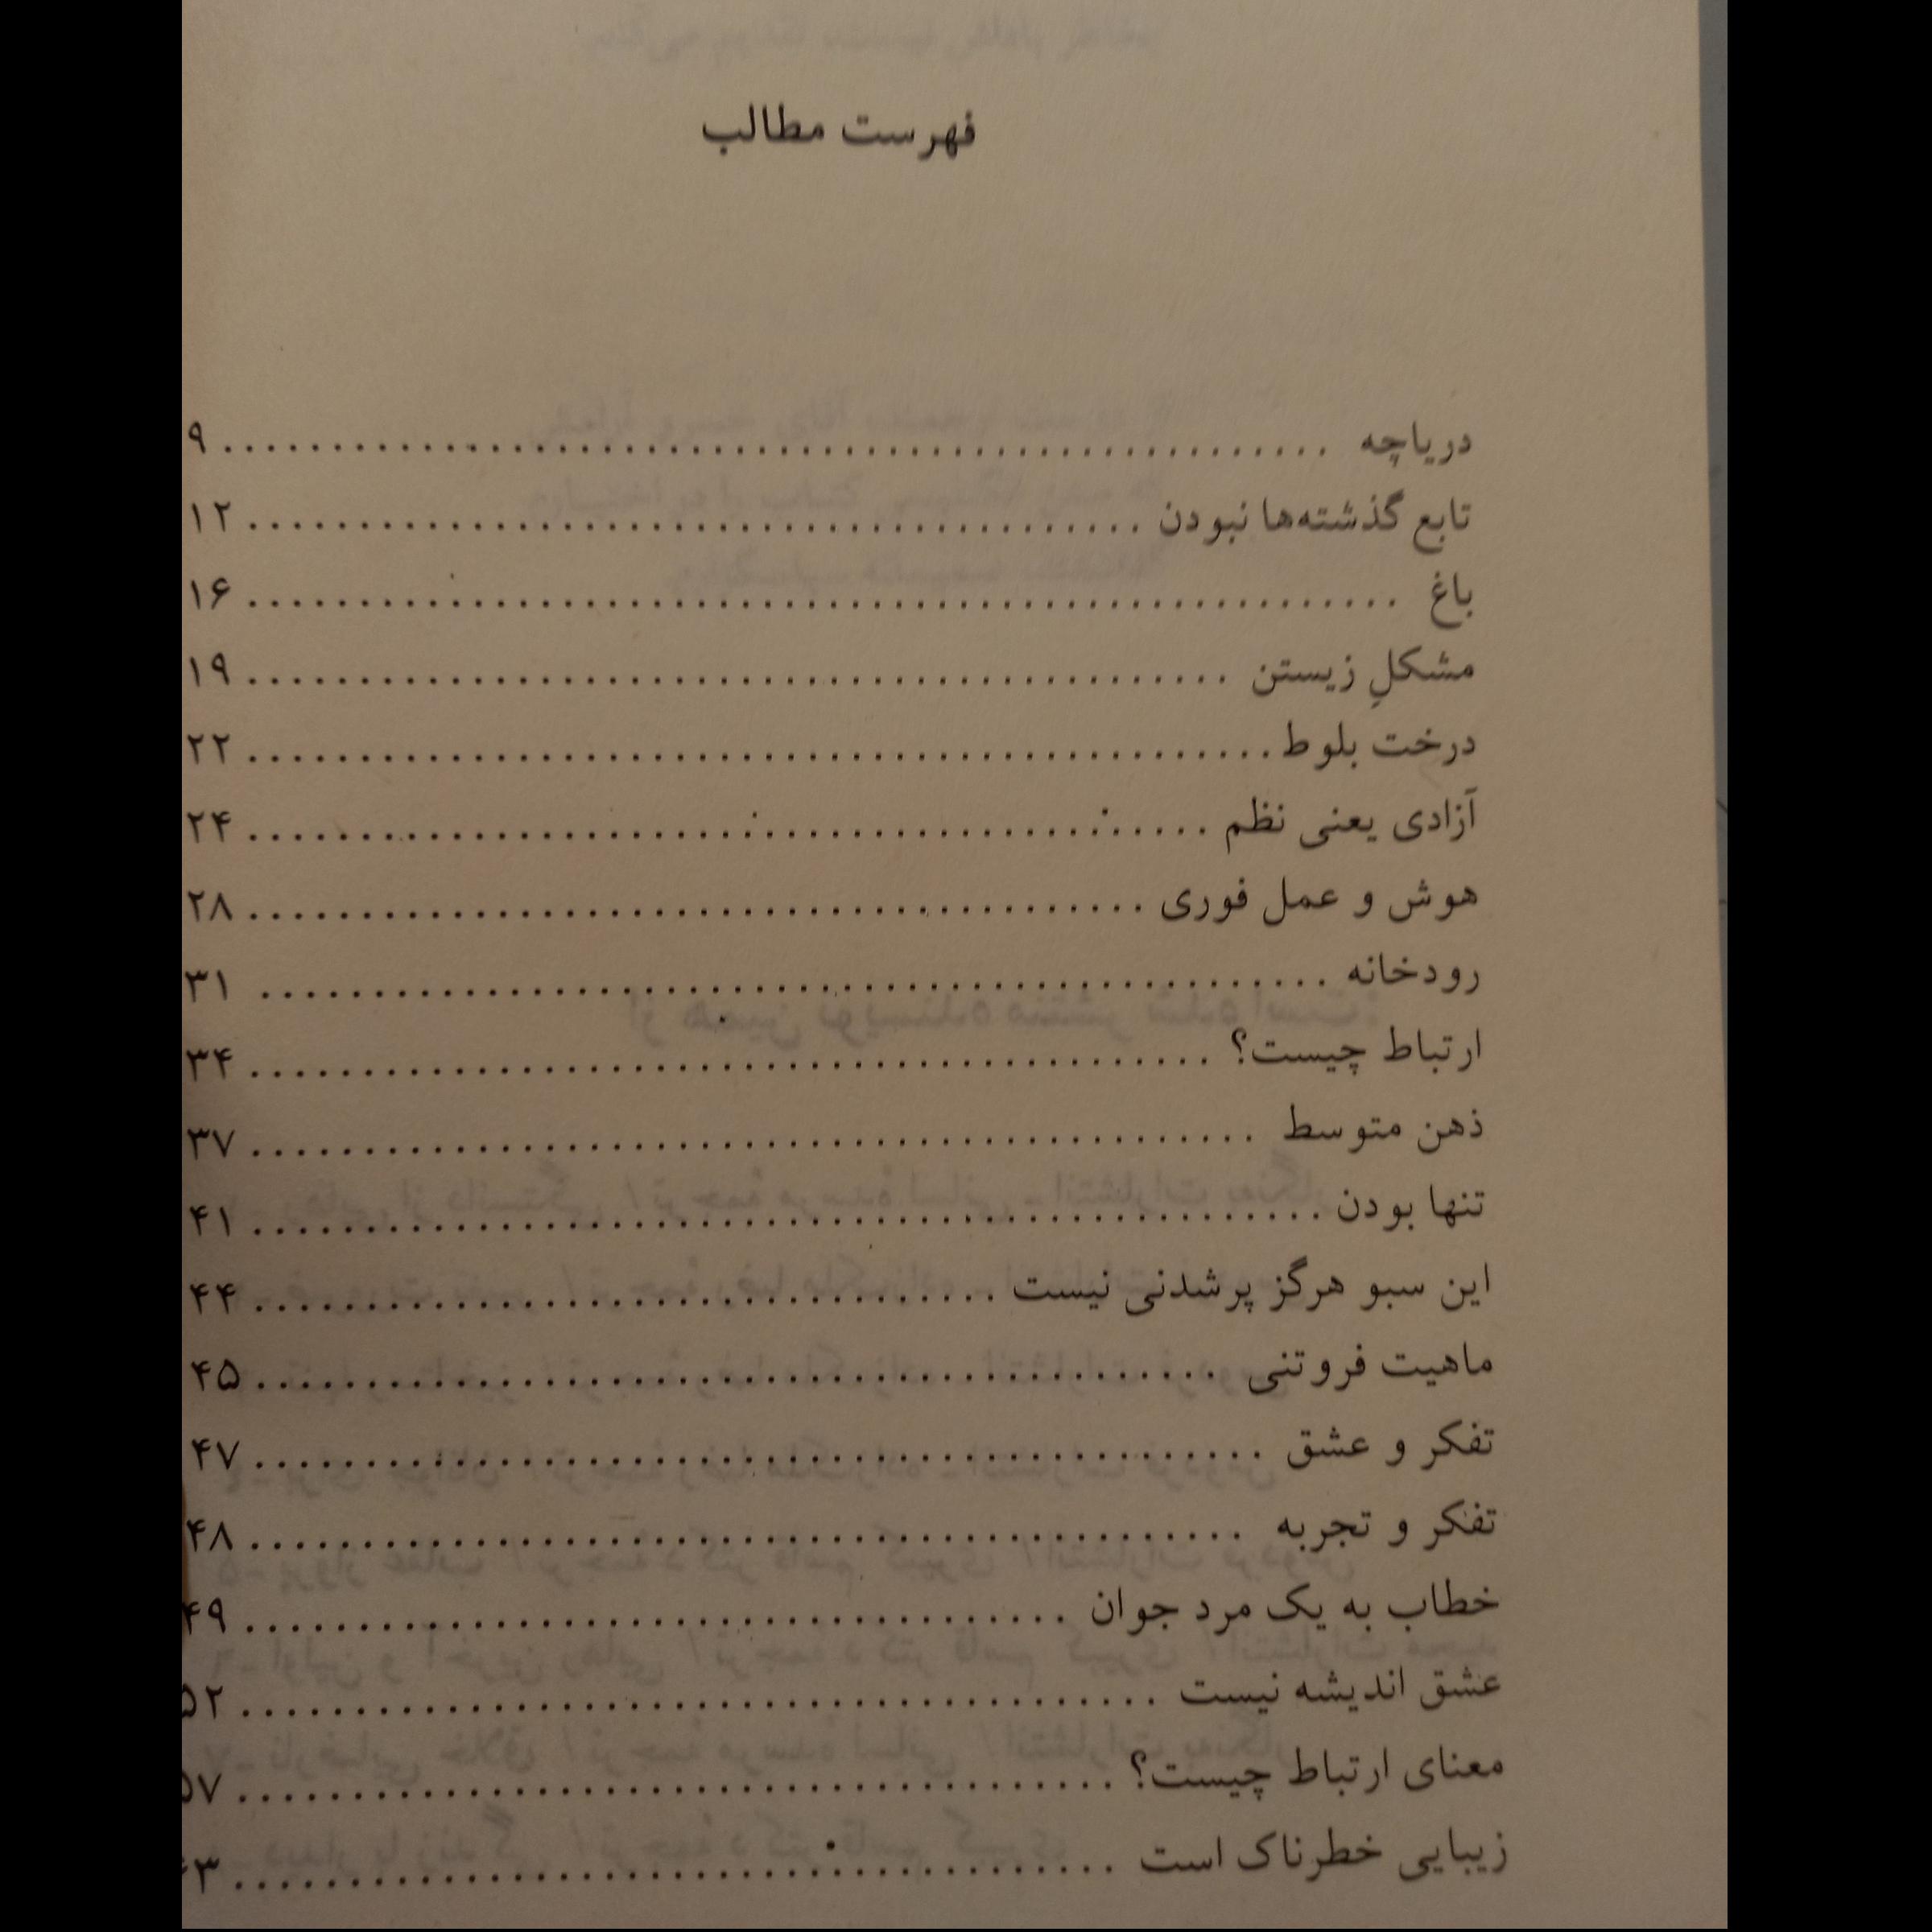 فهرست مطالب
دریاچه ........................................ ۹
تابع گذشته‌ها نبودن ................................ ۱۲
باغ ........................................ ۱۶
مشکلِ زیستن .................................... ۱۹
درخت بلوط..................................... ۲۲
آزادی یعنی نظم ................................... ۲۴
هوش و عمل فوری ................................ ۲۸
رودخانه ...................................... ۳۱
ارتباط چیست؟ .................................. ۳۴
ذهن متوسط .................................... ۳۷
تنها بودن ...................................... ۴۱
این سبو هرگز پرشدنی نیست ........................... ۴۴
ماهیت فروتنی ................................... ۴۵
تفکر و عشق .................................... ۴۷
تفکر و تجربه .................................... ۴۸
خطاب به یک مرد جوان .............................. ۴۹
عشق اندیشه نیست ................................. ۵۲
معنای ارتباط چیست؟ ................................ ۵۷
زیبایی خطرناک است ................................ ۶۳